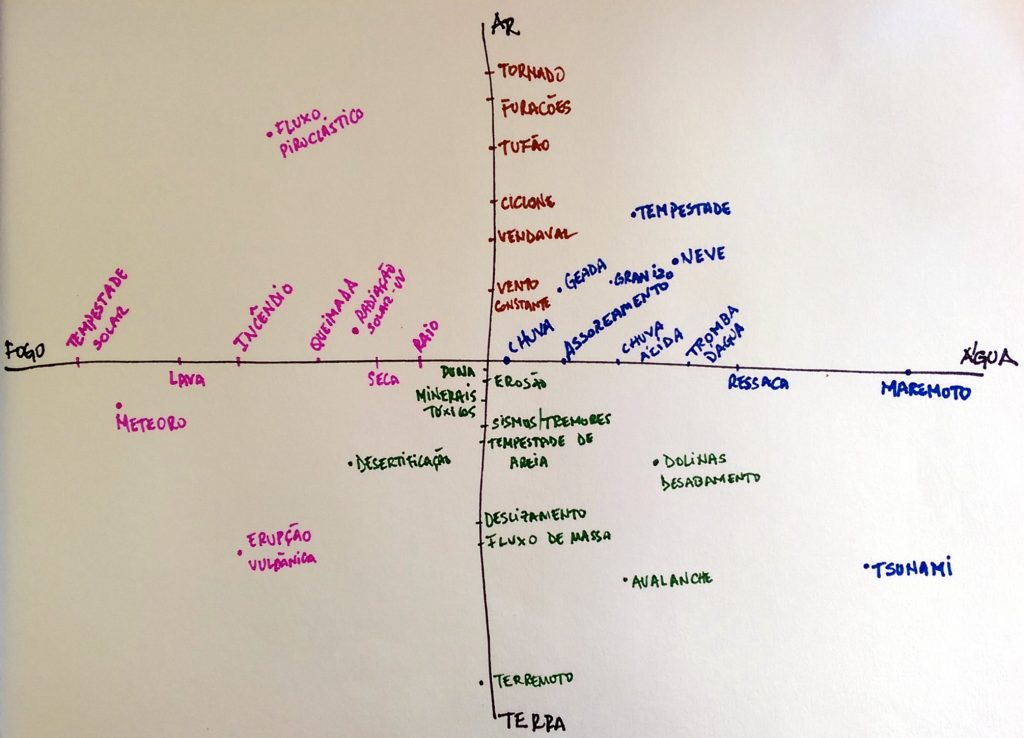 AR
TORNADO
FURACÕES
TUFÃO
CICLONE
VENDAVAL
VENTO
CONSTANTE
FLUXO
PIROCLÁSTICO
TEMPESTADE
NEVE
GEADA
GRANIZO
CHUVA
ASSOREAMENTO
CHUVA
ÁCIDA
TROMBA
DAGUA
ÁGUA
RESSACA
MAREMOTO
FOGO
TEMPESTADE
SOLAR
LAVA
INCÊNDIO
QUEIMADA
RADIAÇÃO
SOLAR-UV
SECA
RAIO
METEORO
DUNA
MINERAIS
TÓXICOS
EROSÃO
SISMOS/TREMORES
TEMPESTADE DE
AREIA
DESERTIFICAÇÃO
DOLINAS
DESABAMENTO
DESLIZAMENTO
FLUXO DE MASSA
ERUPÇÃO
VULCÂNICA
AVALANCHE
TSUNAMI
TERREMOTO
TERRA